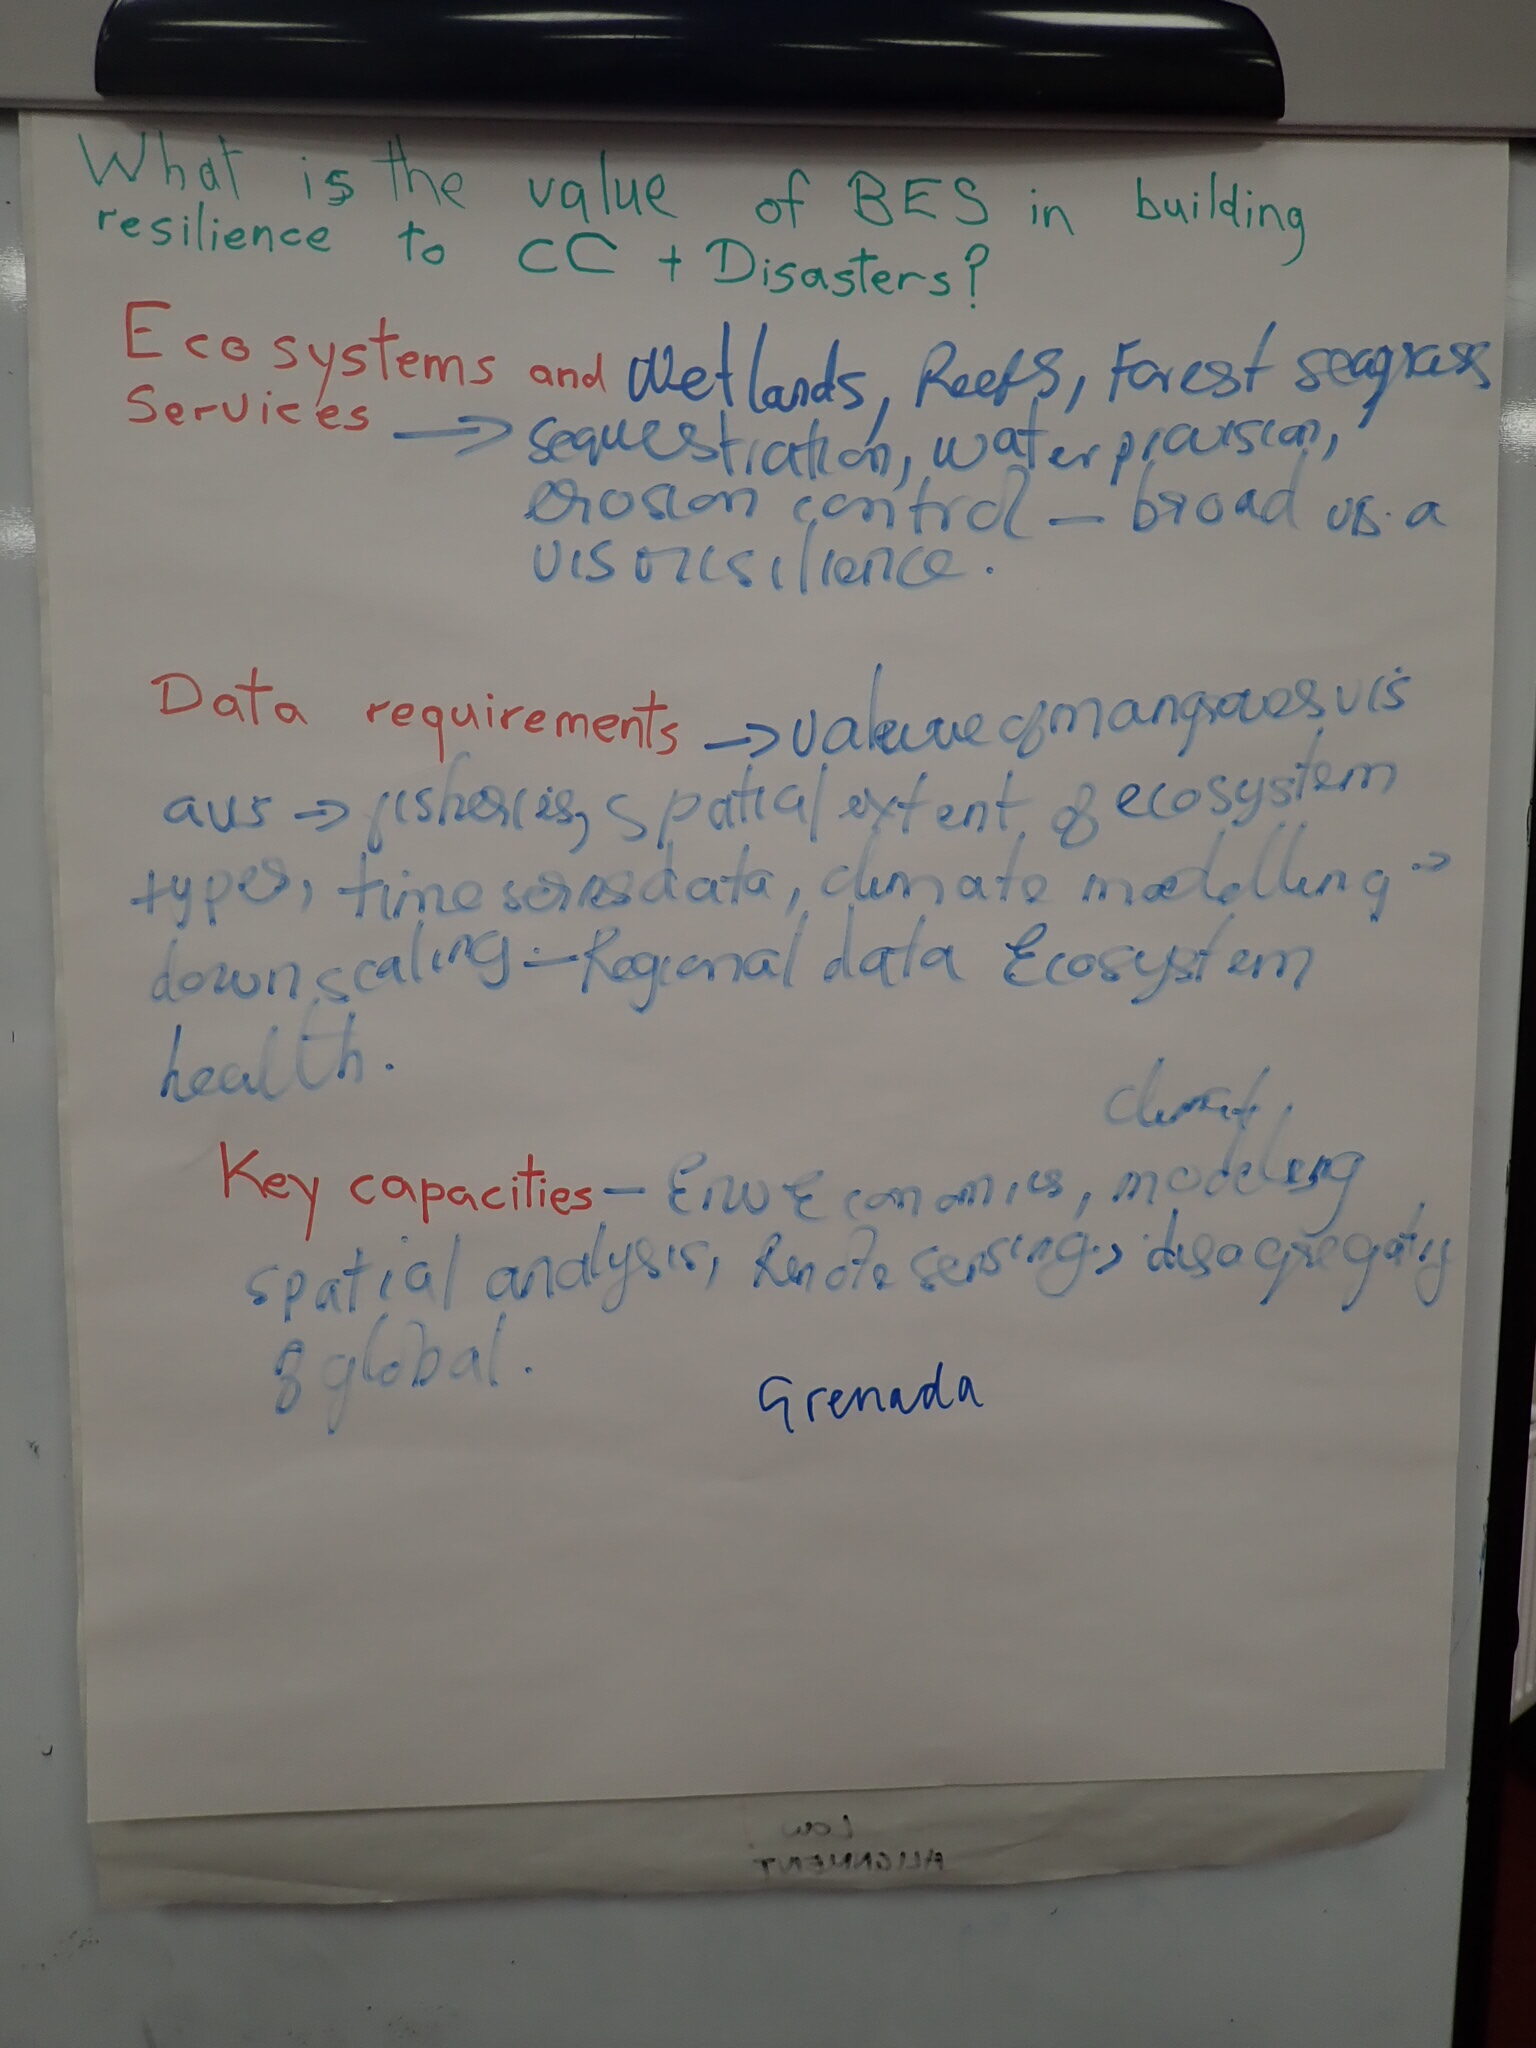 What is the value of BES in building
resilience to CC + Disasters?
Ecosystems and Wetlands, Reefs, Forest seagrass
Services → sequestration, water provision,
erosion control - broad vs. a
vis resilience.
Data requirements → value of mangroves vis
avis → fisheries, spatial extent of ecosystem
types, time series data, climate modelling →
downscaling - Regional data Ecosystem
health.
climate
Key capacities - Economics, modeling
spatial analysis, Remote sensing, disaggregating
of global.
Grenada
Low
ALIGNMENT